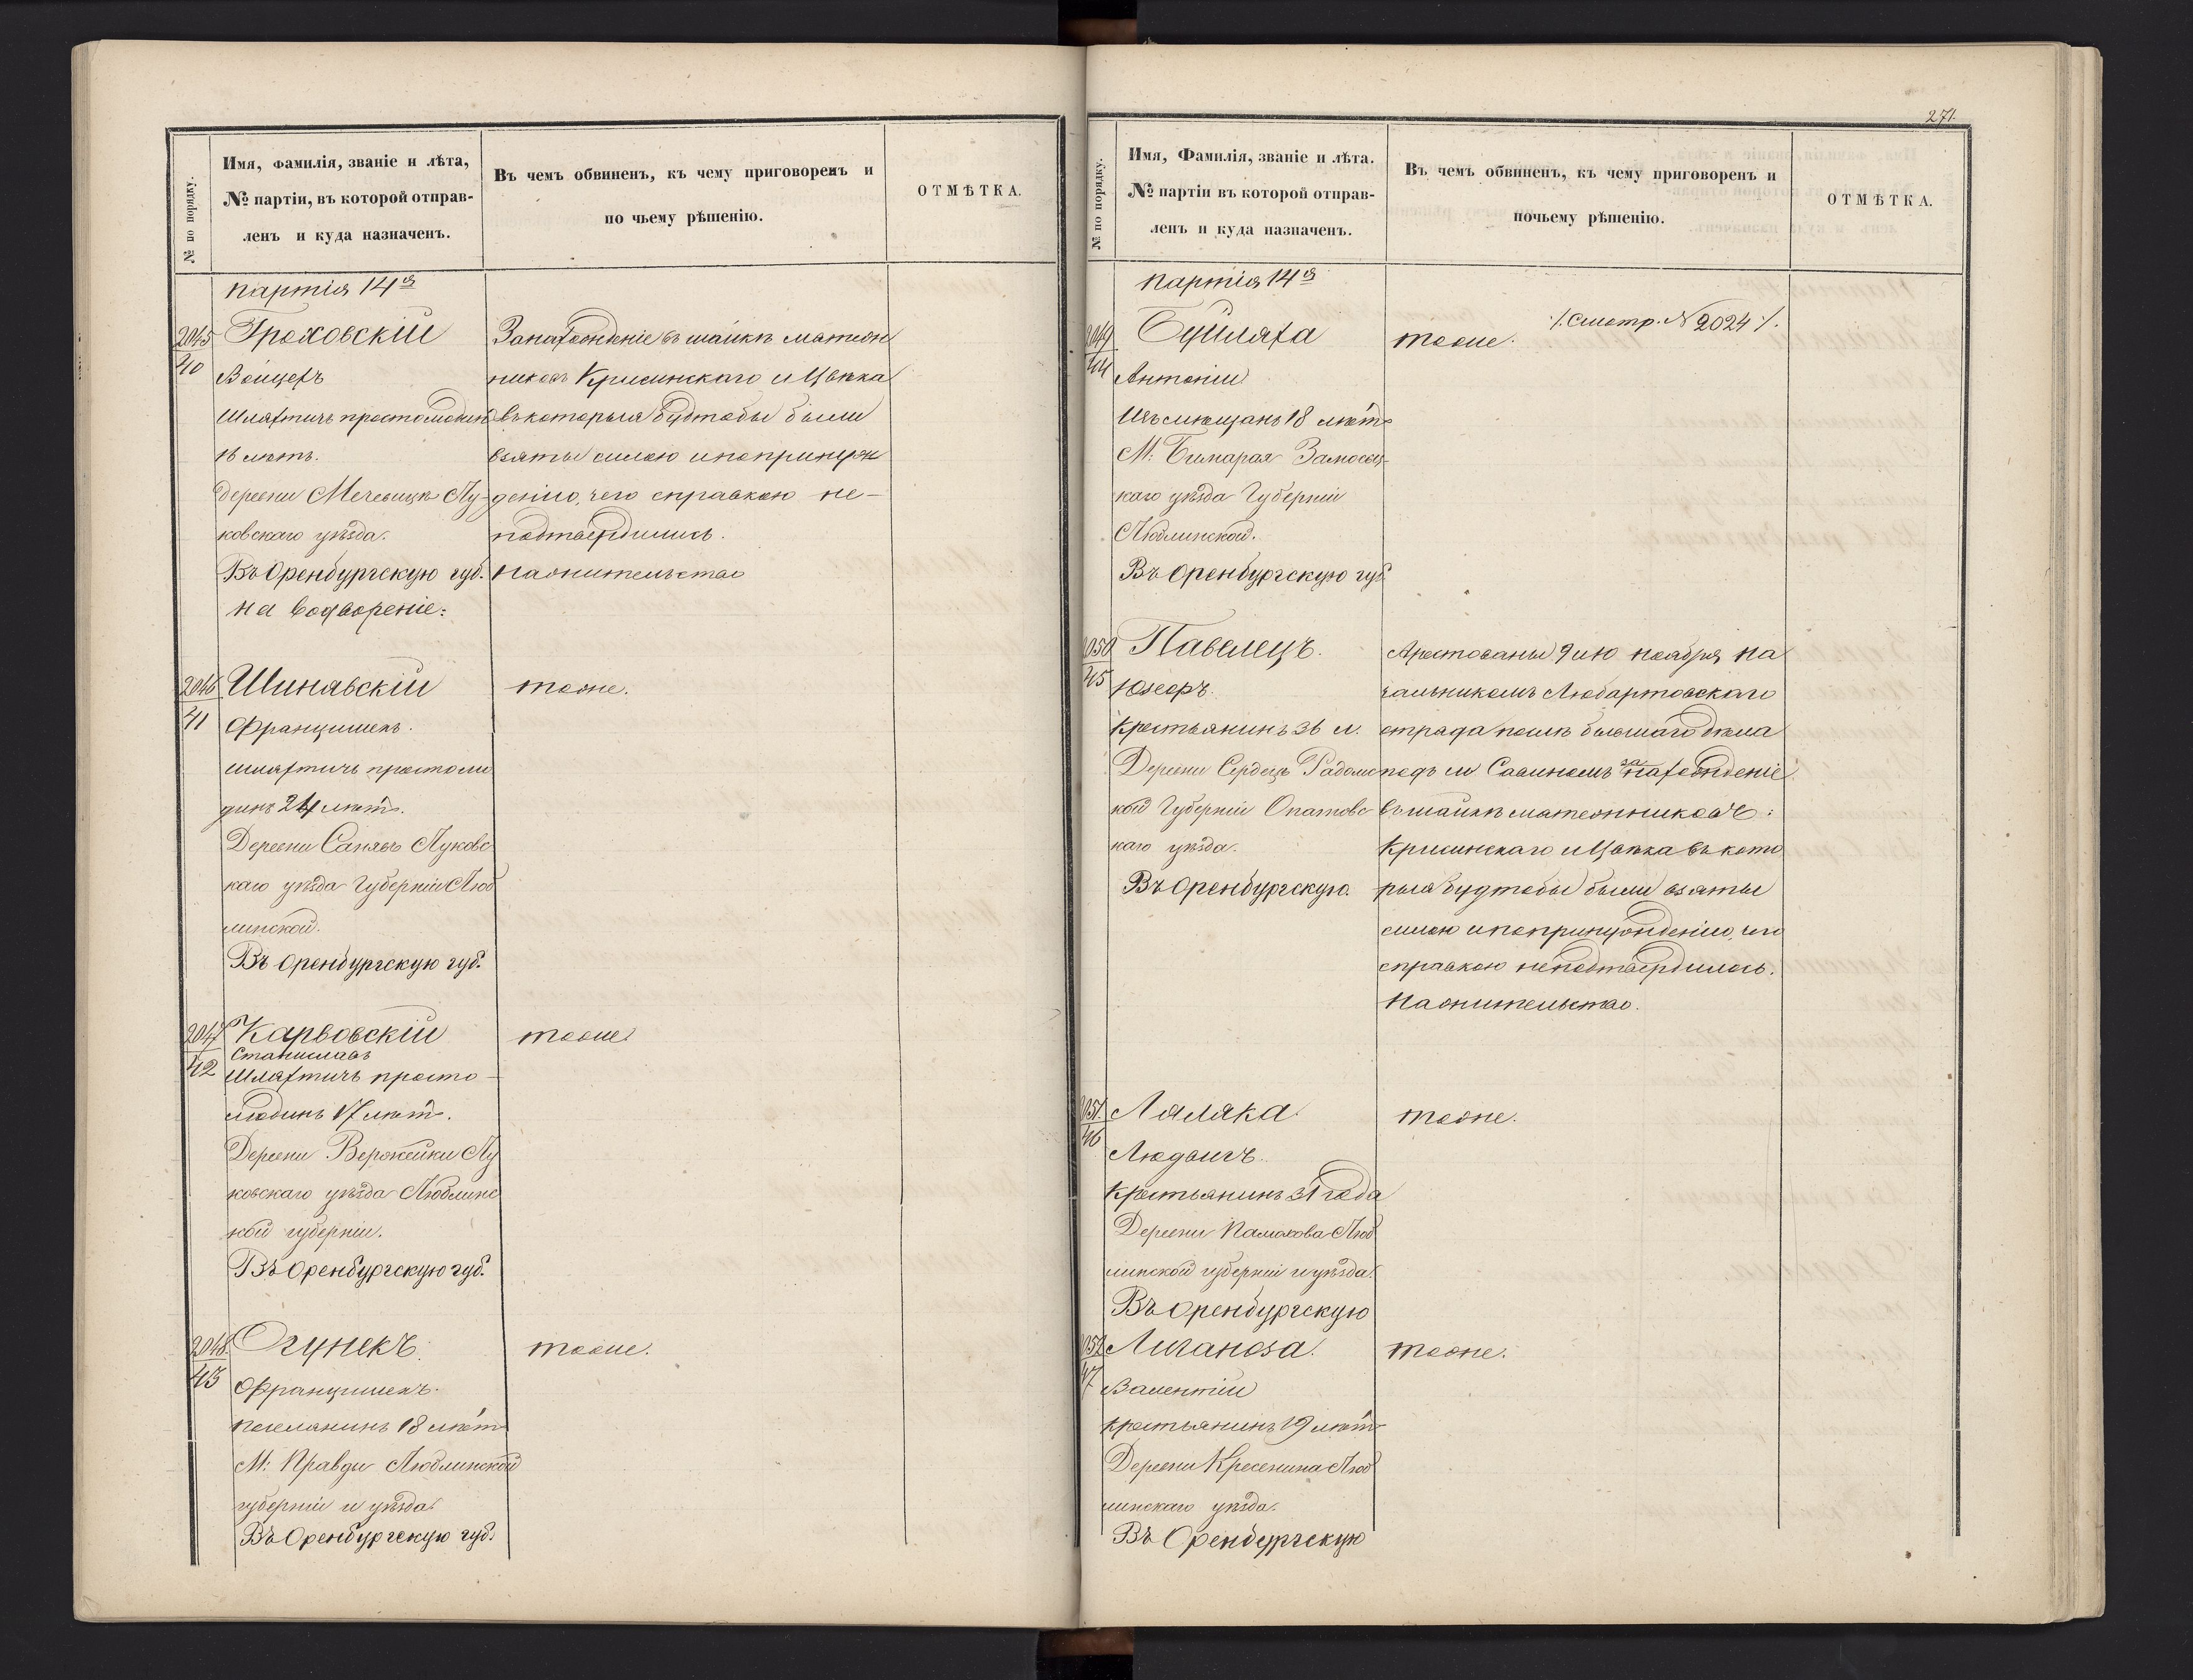 № по порядку.
Имя, Фамилія, званіе и лѣта,
№ партіи, въ которой отправ-
ленъ и куда назначенъ.
Въ чемъ обвиненъ, къ чему приговоренъ и
по чьему рѣшенію.
ОТМѢТКА.
партія 14я
2045
40
Гроховскій
Войцехъ
Шляхтичъ простолюдинъ
16 лѣтъ.
Деревни Мечевицъ Лу-
ковскаго уѣзда.
Въ Оренбургскую губ.
на водвореніе.
За нахожденіе въ шайкѣ мятеж
никовъ Крисинскаго и Цвѣка
въ которыя будтобы были
взяты силою и по принуж
денію, чего справкою не-
подтвердились.
На жительство
2046
41
Шинявскій
Францишекъ.
шляхтичъ простолю
динъ 24 лѣтъ.
Деревни Саняви Луковс
каго уѣзда Губерніи Люб
линской.
Въ Оренбургскую губ.
тоже.
2047
42
Карвовскій
Станиславъ
Шляхтичъ просто-
людинъ 17 лѣтъ.
Деревни Вержейки Лу
ковскаго уѣзда Люблинс
кой губерніи.
Въ Оренбургскую губ.
тоже
2048.
43
Огунекъ.
Францишекъ.
поселянинъ 18 лѣтъ
М: Правди Люблинской
губерніи и уѣзда.
Въ Оренбургскую губ.
тоже.
271.
№ по порядку.
Имя, Фамилія, званіе и лѣта.
№ партіи въ которой отправ-
ленъ и куда назначенъ.
Въ чемъ обвиненъ, къ чему приговоренъ и
почьему рѣшенію.
ОТМѢТКА.
партія 14я
2049
44
Антоній
Изъ мѣщанъ 18 лѣтъ
М: Замосц-
каго уѣзда Губерніи
Люблинской.
Въ Оренбургскую губ.
тоже.
/. Смотр. № 2024 /.
2050
45
Павелецъ.
Юзефъ.
Крестьянинъ 36 л.
Деревни Радомс
кой Губерніи Опатовс
каго уѣзда.
Въ Оренбургскую.
Арестованы 9 и 10 ноября на
чальникомъ Любартовскаго
отряда послѣ бывшаго дѣла
подъ м Савиномъ за нахожденіе
въ шайкѣ мятежниковъ:
Крисинскаго и Цвѣка въ кото
рыя будтобы были взяты
силою и по принужденію, чего
справкою неподтвердилось.
На жительство.
051.
46
Ляляка.
Людвигъ.
Крестьянинъ 31 года
Деревни Палохова Люб
линской губерніи и уѣзда.
Въ Оренбургскую
тоже.
052
47
Лиганоза.
Валентій
крестьянинъ 19 лѣтъ
Деревни Кресенина Люб
линскаго уѣзда.
Въ Оренбургскую
тоже.